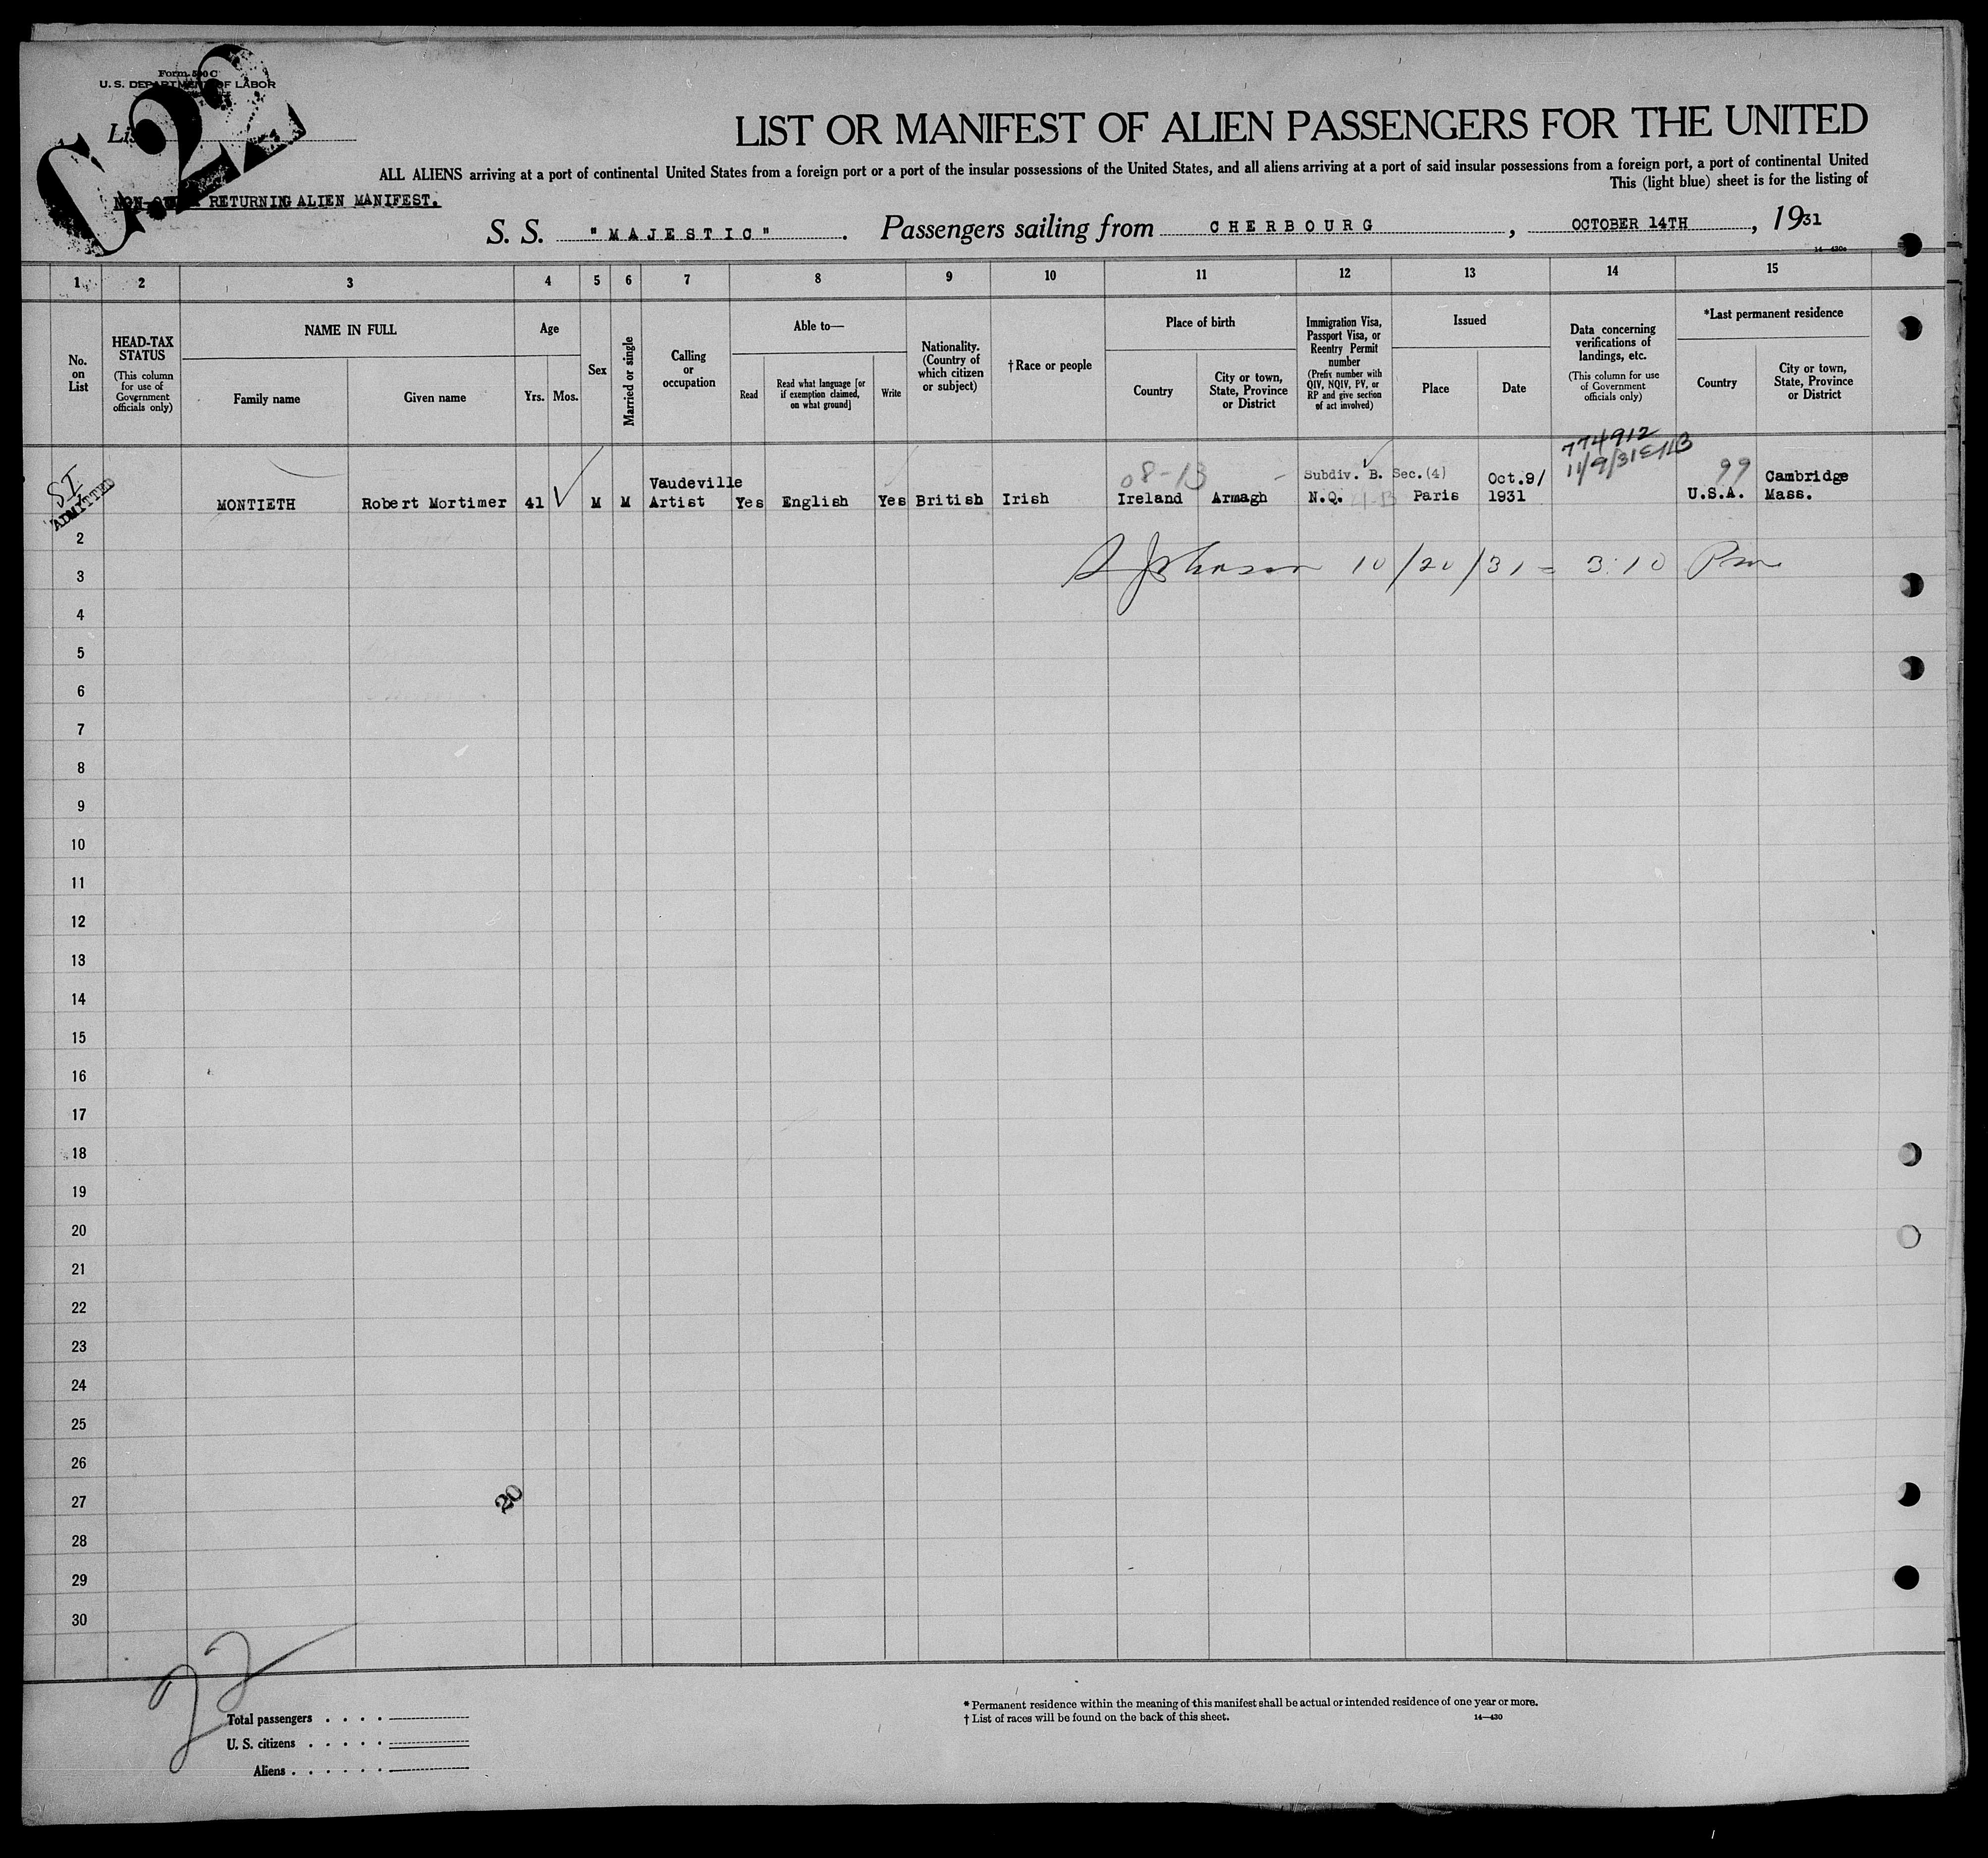 Form 500 C
U. S. DEPARTMENT OF LABOR
C.22
LIST OR MANIFEST OF ALIEN PASSENGERS FOR THE UNITED
ALL ALIENS arriving at a port of continental United States from a foreign port or a port of the insular possessions of the United States, and all aliens arriving at a port of said insular possessions from a foreign port, a port of continental United
This (light blue) sheet is for the listing of
RETURNING ALIEN MANIFEST.
S. S. "MAJESTIC". Passengers sailing from CHERBOURG, OCTOBER 14TH, 1931
1 2 3 4 5 6 7 8 9 10 11 12 13 14 15
No. on List
HEAD-TAX STATUS
(This column for use of Government officials only)
NAME IN FULL
Family name
Given name
Age
Yrs. Mos.
Sex
Married or single
Calling or occupation
Able to—
Read
Read what language [or if exemption claimed, on what ground]
Write
Nationality. (Country of which citizen or subject)
† Race or people
Place of birth
Country
City or town, State, Province or District
Immigration Visa, Passport Visa, or Reentry Permit number
(Prefix number with QIV, NQIV, PV, or RP and give section of act involved)
Issued
Place
Date
Data concerning verifications of landings, etc.
(This column for use of Government officials only)
*Last permanent residence
Country
City or town, State, Province or District
774912
11/9/31
SI
ADMITTED
08-13
99
Vaudeville Subdiv. B. Sec.(4) Oct.9/ Cambridge
MONTIETH Robert Mortimer 41 M M Artist Yes English Yes British Irish Ireland Armagh N.Q. Paris 1931 U.S.A. Mass.
2
Johnson 10/20/31 = 3:10 Pm
3
4
5
6
7
8
9
10
11
12
13
14
15
16
17
18
19
20
21
22
23
24
25
26
27
20
28
29
30
22
Total passengers
U. S. citizens
Aliens
* Permanent residence within the meaning of this manifest shall be actual or intended residence of one year or more.
† List of races will be found on the back of this sheet.
14—430